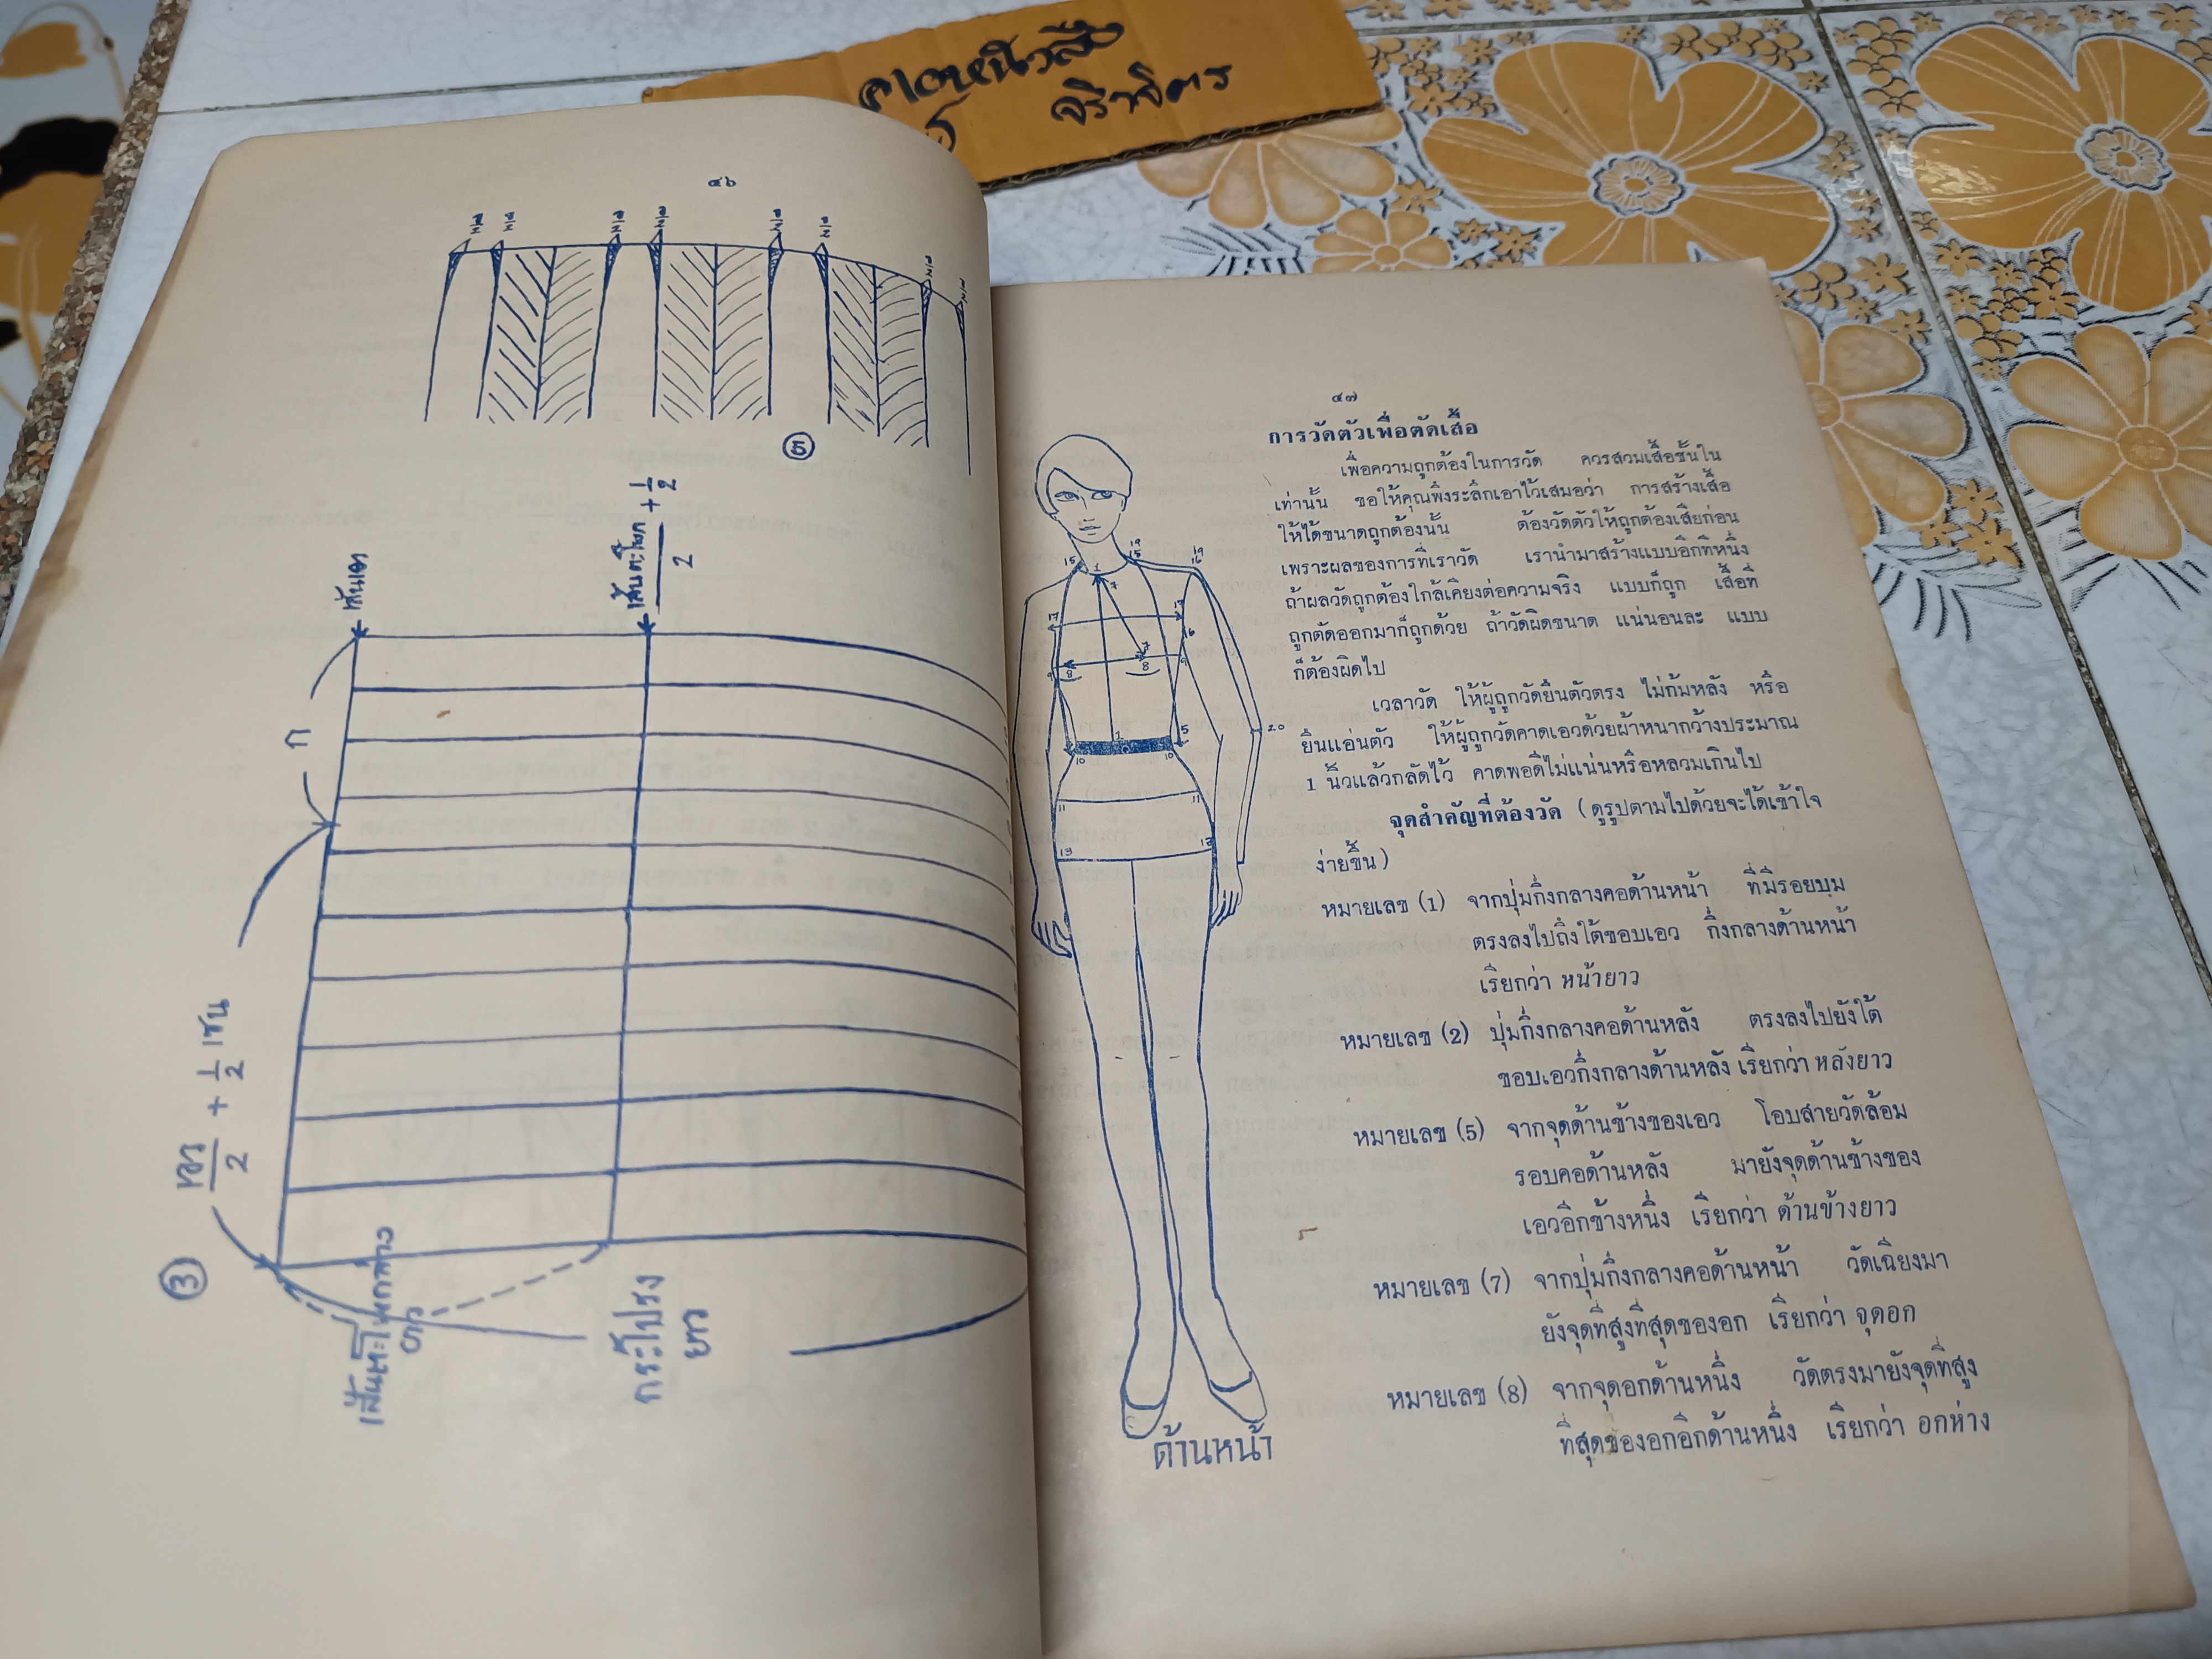 ๔๖
เส้นเอว
เส้นตะโพก + 1/2
2
ก
เอว + 1/2 เซน
2
3
เส้นตะโพกกลาง
ยาว
กระโปรง
ยาว
๔๗
การวัดตัวเพื่อตัดเสื้อ
เพื่อความถูกต้องในการวัด ควรสวมเสื้อชั้นใน
เท่านั้น ขอให้คุณพึงระลึกเอาไว้เสมอว่า การสร้างเสื้อ
ให้ได้ขนาดถูกต้องนั้น ต้องวัดตัวให้ถูกต้องเสียก่อน
เพราะผลของการที่เราวัด เรานำมาสร้างแบบอีกทีหนึ่ง
ถ้าผลวัดถูกต้องใกล้เคียงต่อความจริง แบบก็ถูก เสื้อที่
ถูกตัดออกมาก็ถูกด้วย ถ้าวัดผิดขนาด แน่นอนละ แบบ
ก็ต้องผิดไป
เวลาวัด ให้ผู้ถูกวัดยืนตัวตรง ไม่ก้มหลัง หรือ
ยืนแอ่นตัว ให้ผู้ถูกวัดคาดเอวด้วยผ้าหนากว้างประมาณ
1 นิ้วแล้วกลัดไว้ คาดพอดีไม่แน่นหรือหลวมเกินไป
จุดสำคัญที่ต้องวัด (ดูรูปตามไปด้วยจะได้เข้าใจ
ง่ายขึ้น)
หมายเลข (1) จากปุ่มกึ่งกลางคอด้านหน้า ที่มีรอยบุ๋ม
ตรงลงไปถึงใต้ขอบเอว กึ่งกลางด้านหน้า
เรียกว่า หน้ายาว
หมายเลข (2) ปุ่มกึ่งกลางคอด้านหลัง ตรงลงไปยังใต้
ขอบเอวกึ่งกลางด้านหลัง เรียกว่า หลังยาว
หมายเลข (5) จากจุดด้านข้างของเอว โอบสายวัดล้อม
รอบคอด้านหลัง มายังจุดด้านข้างของ
เอวอีกข้างหนึ่ง เรียกว่า ด้านข้างยาว
หมายเลข (7) จากปุ่มกึ่งกลางคอด้านหน้า วัดเฉียงมา
ยังจุดที่สูงที่สุดของอก เรียกว่า จุดอก
หมายเลข (8) จากจุดอกด้านหนึ่ง วัดตรงมายังจุดที่สูง
ที่สุดของอกอีกด้านหนึ่ง เรียกว่า อกห่าง
ด้านหน้า